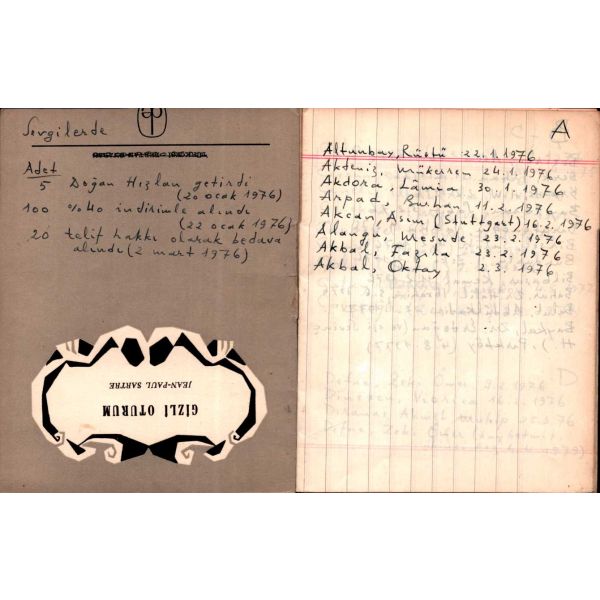 Sevgilerde
Adet
5 Doğan Hızlan getirdi
(20 ocak 1976)
100 %40 indirimle alındı
(22 ocak 1976)
20 telif hakkı olarak bedava
alındı (2 mart 1976)
GİZLİ OTURUM
JEAN-PAUL SARTRE
A
Altunbay, Rüştü 22.1.1976
Akdeniz, Mükerrem 24.1.1976
Akdora, Lâmia 30.1.1976
Arpad, Burhan 11.2.1976
Akcan, Asım (Stuttgart) 16.2.1976
Alangu, Mesude 23.2.1976
Akbal, Fazıla 23.2.1976
Akbal, Oktay 2.3.1976